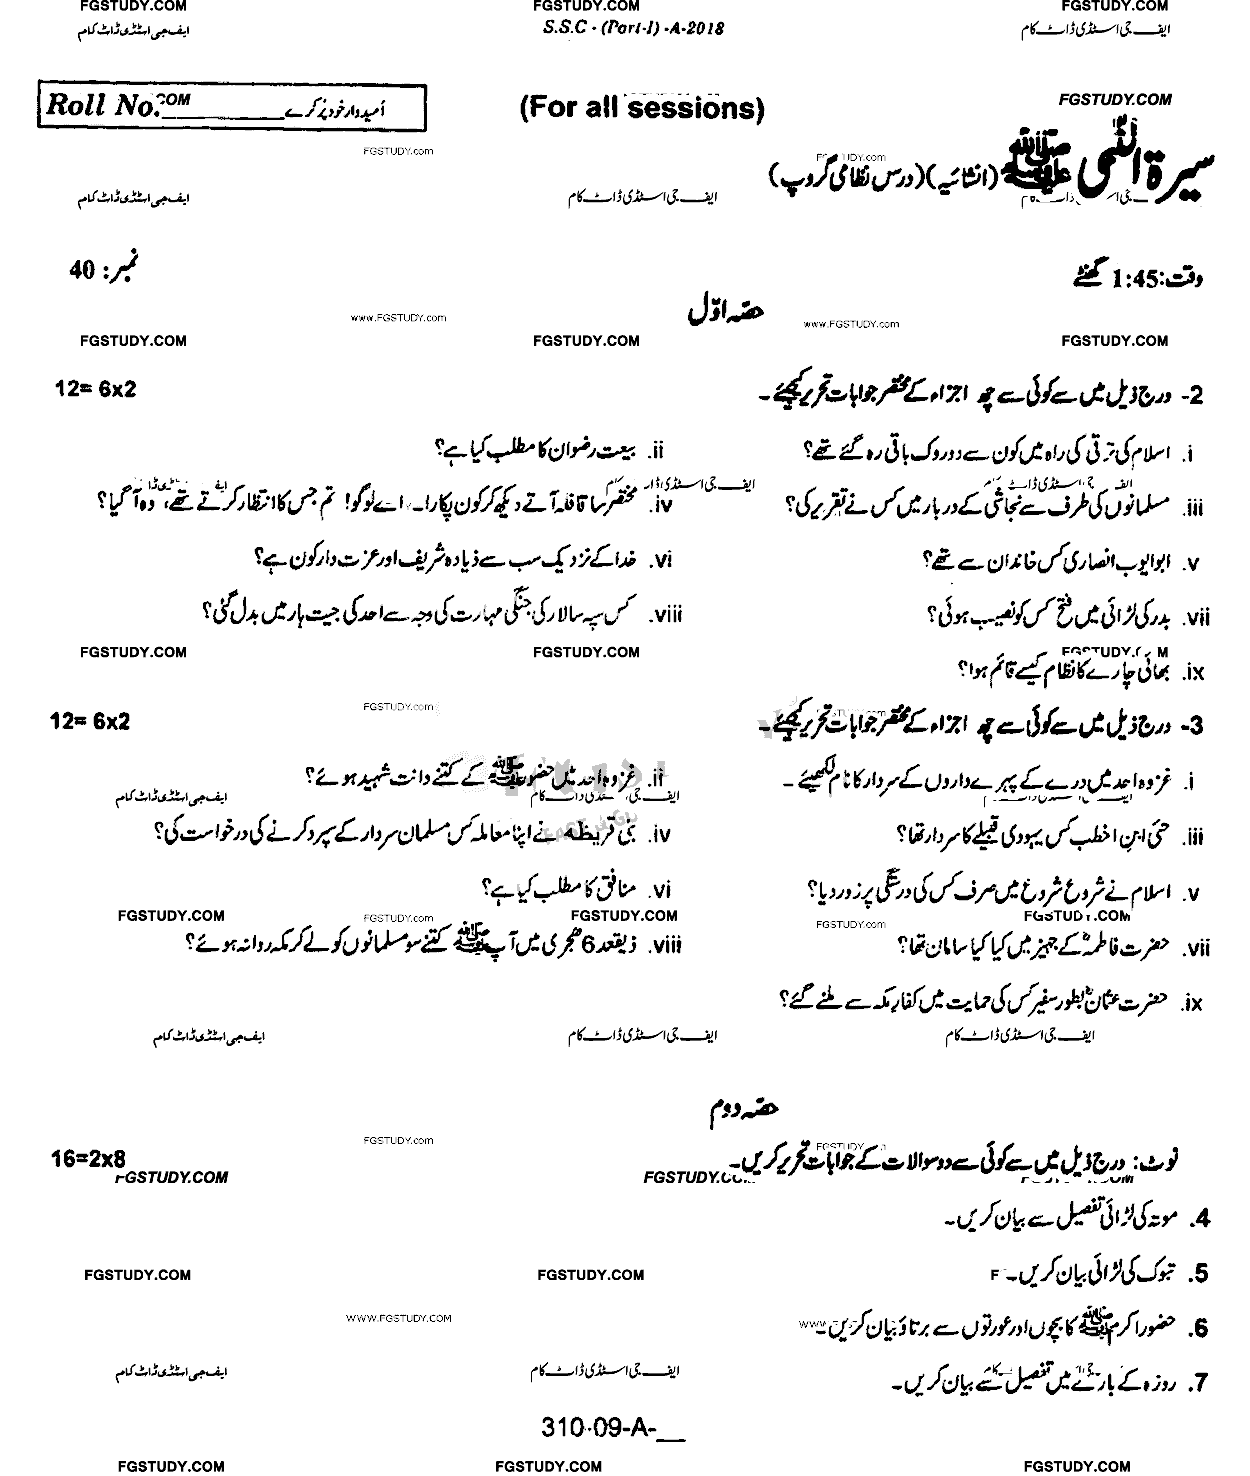 FGSTUDY.COM FGSTUDY.COM FGSTUDY.COM
ایف جی اسٹڈی ڈاٹ کام S.S.C - (Part-I) -A-2018 ایف جی اسٹڈی ڈاٹ کام
Roll No. COM امیدوار خود پُر کرے (For all sessions) FGSTUDY.COM
FGSTUDY.com
سیرۃ النبی ﷺ (انشائیہ) (درس نظامی گروپ)
ایف جی اسٹڈی ڈاٹ کام ایف جی اسٹڈی ڈاٹ کام
وقت: 1:45 گھنٹے نمبر: 40
حصہ اوّل
www.FGSTUDY.com www.FGSTUDY.com
FGSTUDY.COM FGSTUDY.COM FGSTUDY.COM
2- درج ذیل میں سے کوئی سے چھ اجزاء کے مختصر جوابات تحریر کیجئے۔ 12= 6x2
i. اسلام کی ترقی کی راہ میں کون سے دو روک باقی رہ گئے تھے؟ ii. بیعت رضوان کا مطلب کیا ہے؟
ایف جی اسٹڈی ڈاٹ کام
iii. مسلمانوں کی طرف سے نجاشی کے دربار میں کس نے تقریر کی؟ iv. مختصر سا قافلہ آتے دیکھ کر کون پکارا۔ اے لوگو! تم جس کا انتظار کرتے تھے، وہ آ گیا؟
v. ابو ایوب انصاری کس خاندان سے تھے؟ vi. خدا کے نزدیک سب سے زیادہ شریف اور عزت دار کون ہے؟
vii. بدر کی لڑائی میں فتح کس کو نصیب ہوئی؟ viii. کس سپہ سالار کی جنگی مہارت کی وجہ سے احد کی جیت ہار میں بدل گئی؟
FGSTUDY.COM FGSTUDY.COM
ix. بھائی چارے کا نظام کیسے قائم ہوا؟
FGSTUDY.com
3- درج ذیل میں سے کوئی سے چھ اجزاء کے مختصر جوابات تحریر کیجئے۔ 12= 6x2
i. غزوہ احد میں درے کے پہرے داروں کے سردار کا نام لکھیئے۔ ii. غزوہ احد میں حضور ﷺ کے کتنے دانت شہید ہوئے؟
ایف جی اسٹڈی ڈاٹ کام
iii. حئی ابن اخطب کس یہودی قبیلے کا سردار تھا؟ iv. بنی قریظہ نے اپنا معاملہ کس مسلمان سردار کے سپرد کرنے کی درخواست کی؟
v. اسلام نے شروع شروع میں صرف کس کی درستگی پر زور دیا؟ vi. منافق کا مطلب کیا ہے؟
FGSTUDY.COM FGSTUDY.com FGSTUDY.COM FGSTUDY.com FGSTUDY.COM
vii. حضرت فاطمہؓ کے جہیز میں کیا کیا سامان تھا؟ viii. ذیقعد 6 ھجری میں آپ ﷺ کتنے سو مسلمانوں کو لے کر مکہ روانہ ہوئے؟
ix. حضرت عثمانؓ بطور سفیر کس کی حمایت میں کفار مکہ سے ملنے گئے؟
ایف جی اسٹڈی ڈاٹ کام ایف جی اسٹڈی ڈاٹ کام ایف جی اسٹڈی ڈاٹ کام
حصہ دوم
FGSTUDY.com
نوٹ: درج ذیل میں سے کوئی سے دو سوالات کے جوابات تحریر کریں۔ 16=2x8
FGSTUDY.COM
4. موتہ کی لڑائی تفصیل سے بیان کریں۔
5. تبوک کی لڑائی بیان کریں۔
FGSTUDY.COM FGSTUDY.COM
6. حضور اکرم ﷺ کا بچوں اور عورتوں سے برتاؤ بیان کریں۔
WWW.FGSTUDY.COM
ایف جی اسٹڈی ڈاٹ کام ایف جی اسٹڈی ڈاٹ کام
7. روزہ کے بارے میں تفصیل سے بیان کریں۔
310-09-A-__
FGSTUDY.COM FGSTUDY.COM FGSTUDY.COM